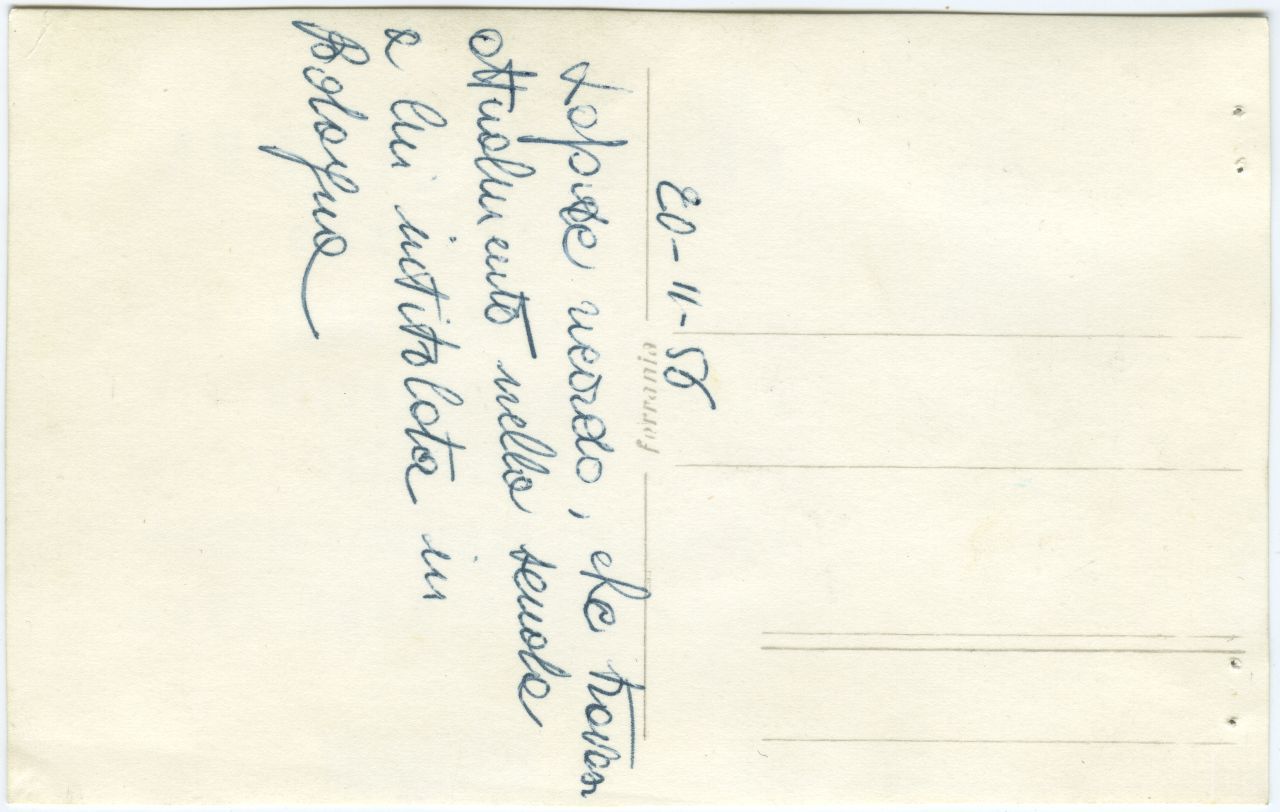 20-11-56
Lapide ricordo, che trovasi
attualmente nella scuola
a lui intitolata in
Bologna
ferrania